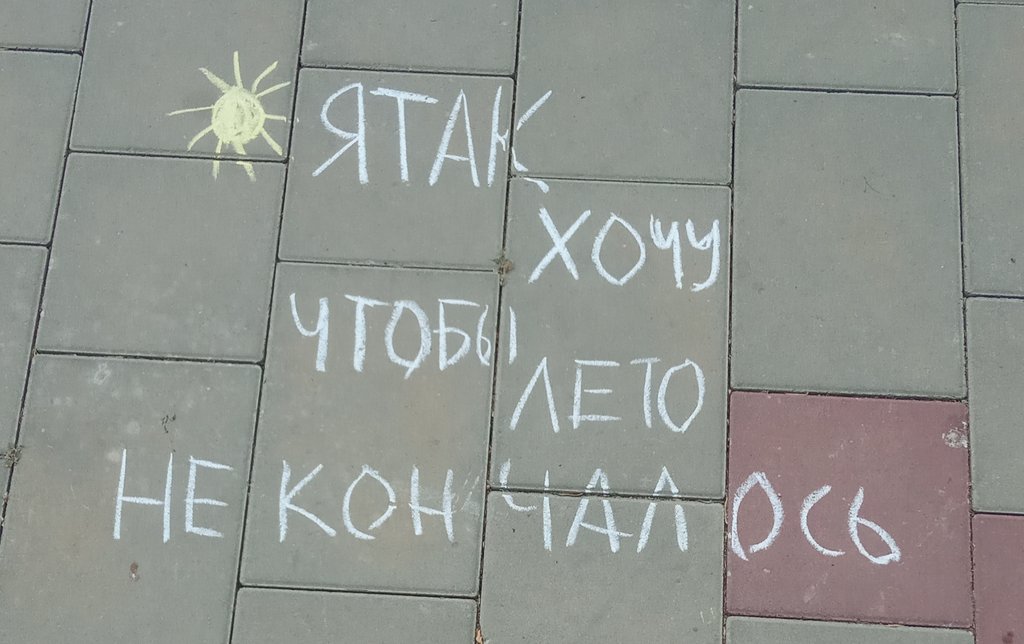 Я ТАК
ХОЧУ
ЧТОБЫ
ЛЕТО
НЕ КОНЧАЛОСЬ